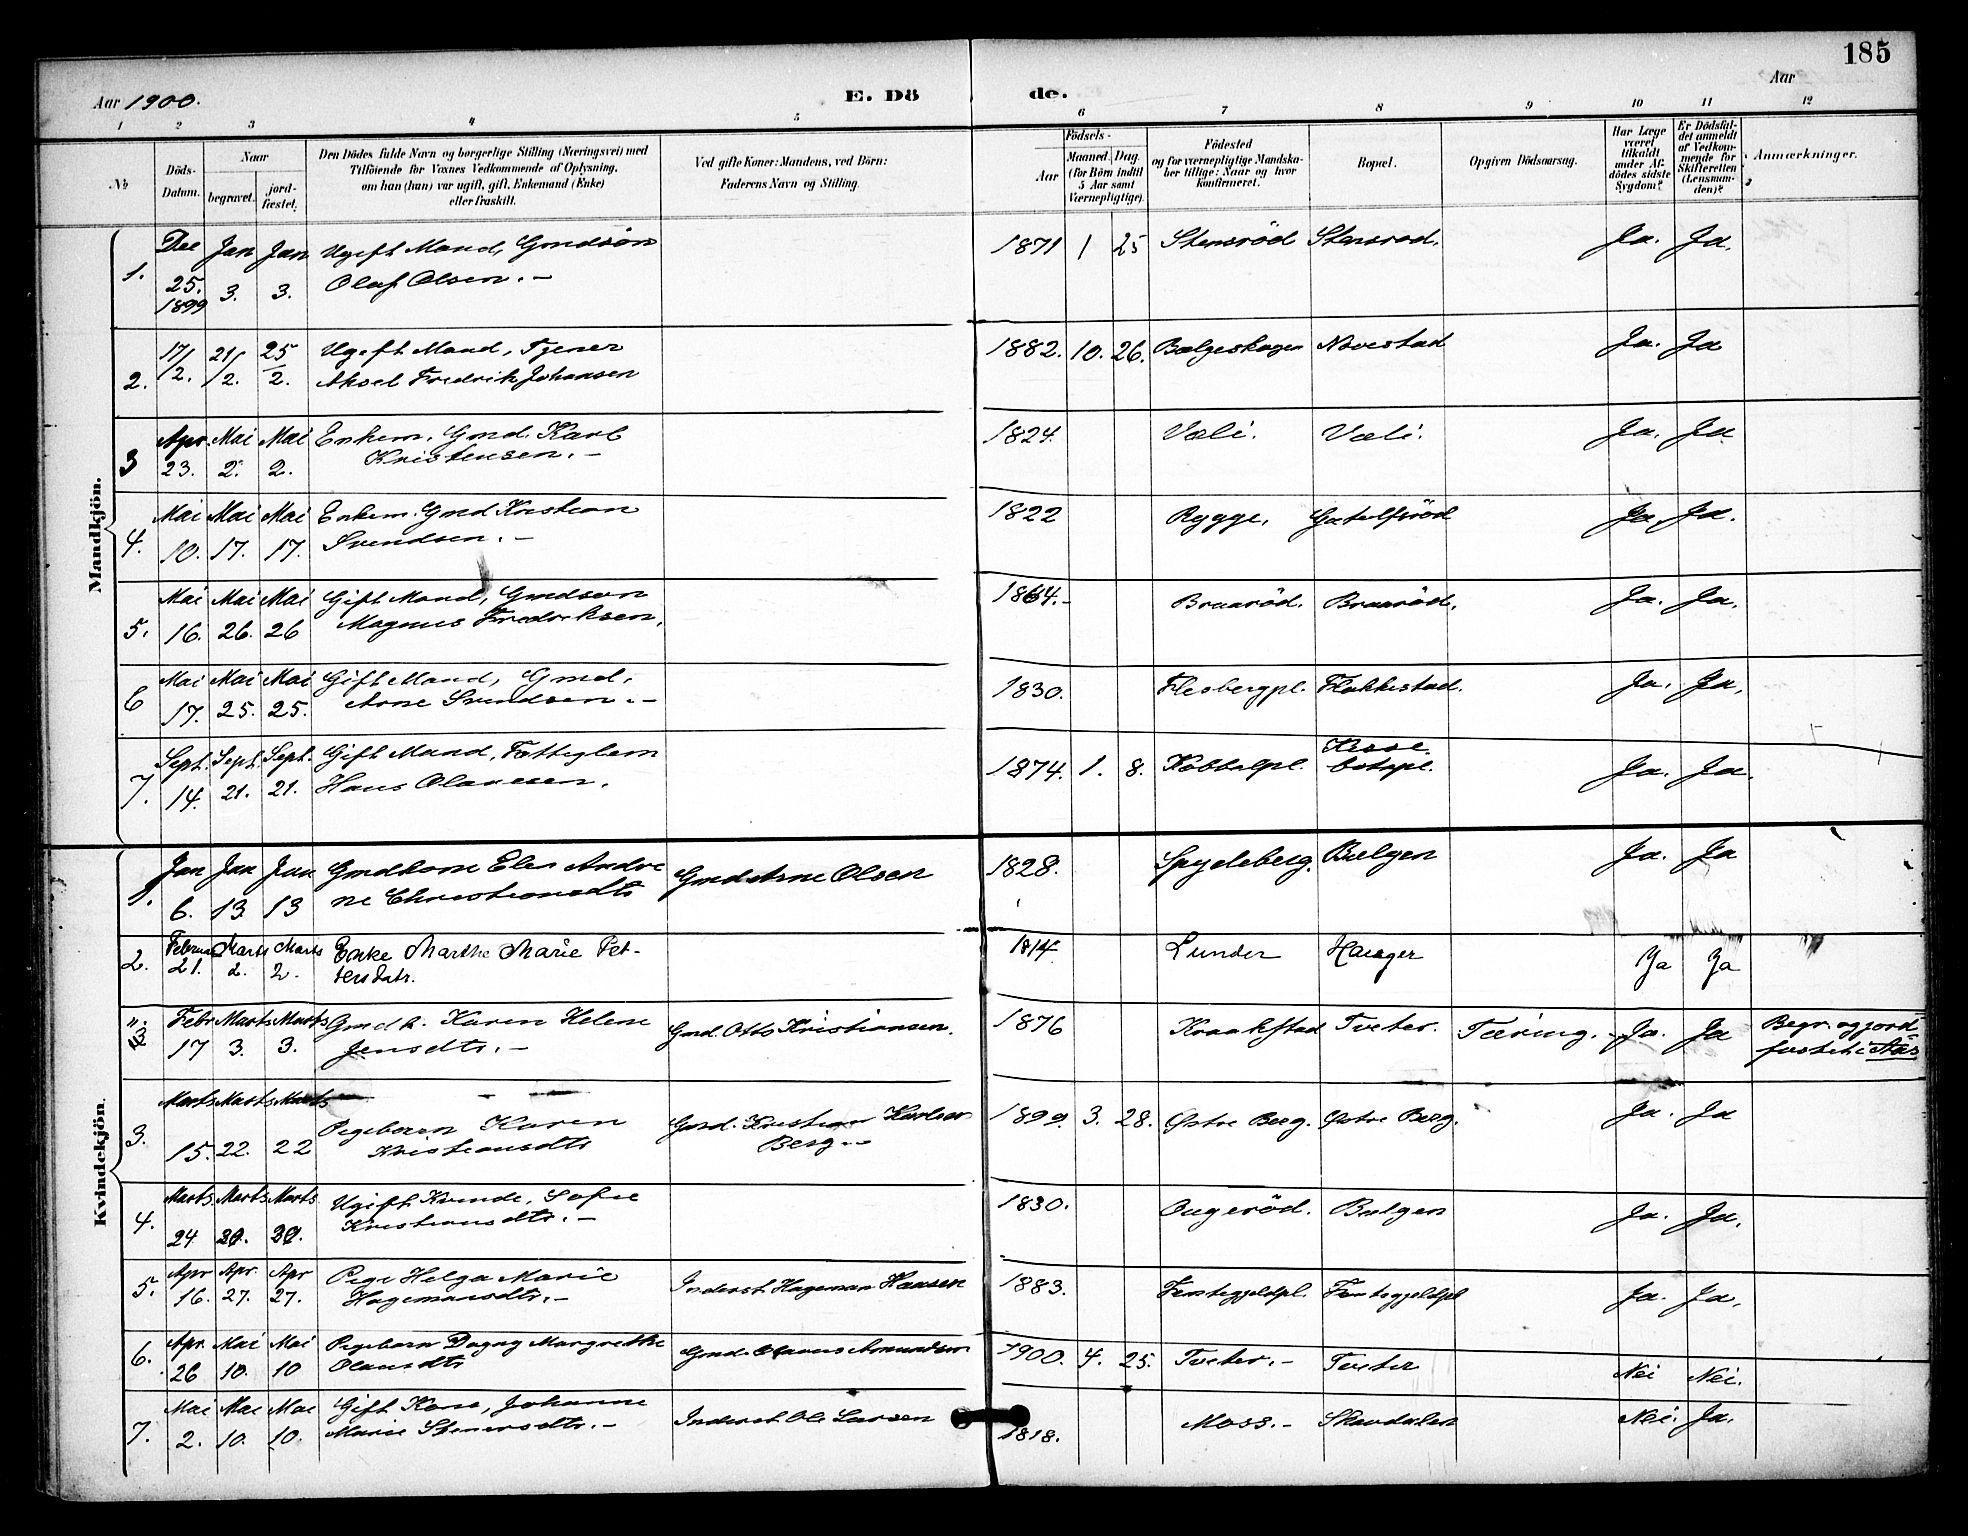 185
Aar 1900.
E. Dö de.
Aar
1 2 3 4 5 6 7 8 9 10 11 12
№
Döds-Datum.
Naar
begravet.
jord-fæstet.
Den Dödes fulde Navn og borgerlige Stilling (Næringsvei) med
Tilföiende for Voxnes Vedkommende af Oplysning,
om han (hun) var ugift, gift, Enkemand (Enke)
eller fraskilt.
Ved gifte Koner: Mandens, ved Börn:
Faderens Navn og Stilling.
Födsels-
Aar
Maaned. Dag.
(for Börn indtil
5 Aar samt
Værnepligtige).
Födested
og for værnepligtige Mandska-
ber tillige: Naar og hvor
konfirmeret.
Bopæl.
Opgiven Dödsaarsag.
Har Læge
været
tilkaldt
under Af-
dödes sidste
Sygdom?
Er Dödsfal-
det anmeldt
af Vedkom-
mende for
Skifteretten
(Lensman-
den)?
Anmærkninger.
Mandkjön.
1. Dec 25. 1899 Jan 3. Jan 3. Ugift Mand, Gmdsön
Olaf Olsen. —
1871 1 25 Stensröd Stensrod. Ja. Ja.
2. 17/2. 21/2. 25/2. Ugift Mand, Tjener
Aksel Fredrik Johansen
1882. 10. 26. Bælgeskogen Ja. Ja
3 Apr. 23. Mai 2. Mai 2. Enkem. Gmd. Karl
Kristensen. —
1824. Væli. Væli. Ja. Ja
4. Mai 10. Mai 17. Mai 17. Enkem. Gmd Kristian
Svendsen. —
1822 Rygge. Ja. Ja.
5. Mai 16. Mai 26. Mai 26 Gift Mand, Gmdsøn
Magnus Fredriksen.
1864. — Braaröd. Braaröd. Ja. Ja.
6 Mai 17. Mai 25. Mai 25. Gift Mand, Gmd.
Arne Svendsen. —
1830. Flesbergpl. Flakkestad. Ja. Ja.
7. Sept. 14. Sept. 21. Sept. 21. Gift Mand, Fattiglem
Hans Olavesen.
1874. 1. 8. Kobbelpl. Ja. Ja.
Kvindekjön.
1. Jan 6. Jan 13 Jan 13 Gmdkone Elen Andre
ne Christiansdtr Gmd Arne Olsen
1828. Spydeberg. Bælgen Ja. Ja
2. Februar 21. Marts 2. Marts 2. Enke Marthe Marie Pet-
tersdatr.
1814. Lunder Hauger Ja Ja
Febr 17 Marts 3. Marts 3. Gmdk. Karen Helene
Jensdtr. — Gmd. Otto Kristiansen.
1876 Kraakstad Tveter. Tæring. Ja. Ja Begr. og jord-
fæstet i Aas
3. Marts 15. Marts 22. Marts 22 Pigebarn Karen
Kristiansdtr Gmd. Kristian Karlsen
Berg. —
1899. 3. 28. Østre Berg. Østre Berg. Ja. Ja
4. Marts 24 Marts Marts Ugift Kvinde, Sofie
Kristiansdtr. —
1830. Ougeröd. Bælgen Ja. Ja.
5. Apr 16. Apr. 27. Apr 27. Pige Helga Marie
Hagemansdtr. — Inderst Hageman Hansen
1883. Ja. Ja.
6. Apr. 26 Mai 10. Mai 10 Pigebarn Dagny Margrethe
Olausdtr Gmd. Olaus Amundsen
1900. 4. 25. Tveter. — Tveter Nei Nei.
7. Mai 2. Mai 10. Mai 10. Gift Kone, Johanne
Marie Stenersdtr. — Inderst Ole Larsen
1818. Moss. — Skavdalen Nei. Ja.